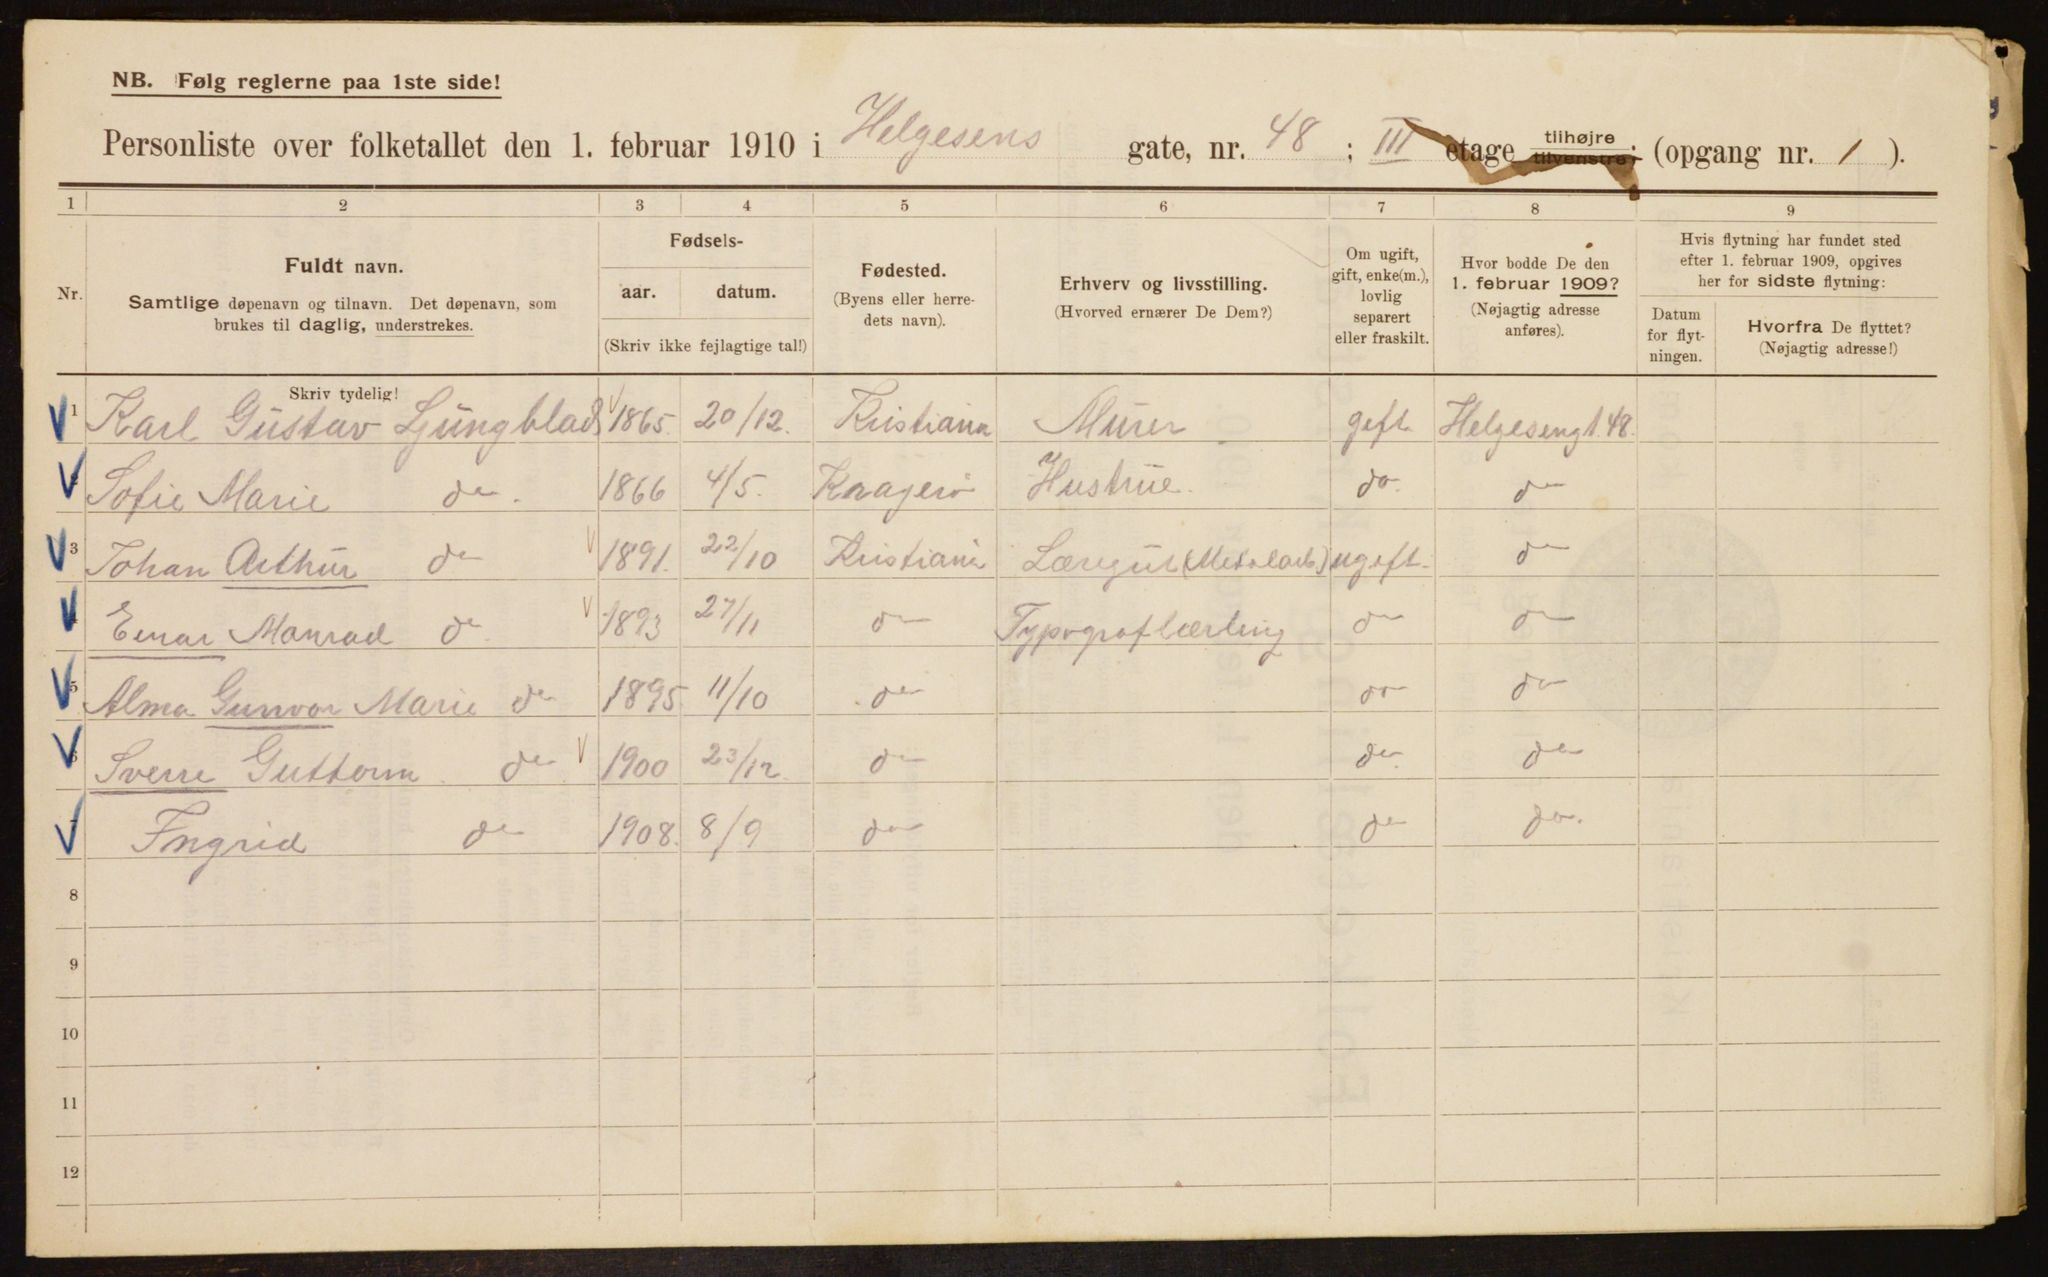 NB. Følg reglerne paa 1ste side!
Personliste over folketallet den 1. februar 1910 i Helgesens gate, nr. 48 ; III etage tilhøjre tilvenstre; (opgang nr. 1 ).
1 2 3 4 5 6 7 8 9
Nr.
Fuldt navn.
Samtlige døpenavn og tilnavn. Det døpenavn, som
brukes til daglig, understrekes.
Skriv tydelig!
Fødsels-
aar. datum.
(Skriv ikke fejlagtige tal!)
Fødested.
(Byens eller herre-
dets navn).
Erhverv og livsstilling.
(Hvorved ernærer De Dem?)
Om ugift,
gift, enke(m.),
lovlig
separert
eller fraskilt.
Hvor bodde De den
1. februar 1909?
(Nøjagtig adresse
anføres).
Hvis flytning har fundet sted
efter 1. februar 1909, opgives
her for sidste flytning:
Datum
for flyt-
ningen.
Hvorfra De flyttet?
(Nøjagtig adresse!)
1 Karl Gustav Ljungblad 1865. 20/12. Kristiania Murer gift Helgesengt. 48.
Sofie Marie do. 1866 4/5. Kragerø Hustrue. do. do
3 Johan Arthur do 1891. 22/10 Kristiania Læregut (Metalarb.) ugift. do
4 Einar Monrad do. 1893 27/11 do Typograflærling do do
5 Alma Gunvor Marie do 1895 11/10 do do do
6 Sverre Guttorm do 1900 23/12. do do. do
7 Ingrid do 1908. 8/9 do do do.
8
9
10
11
12